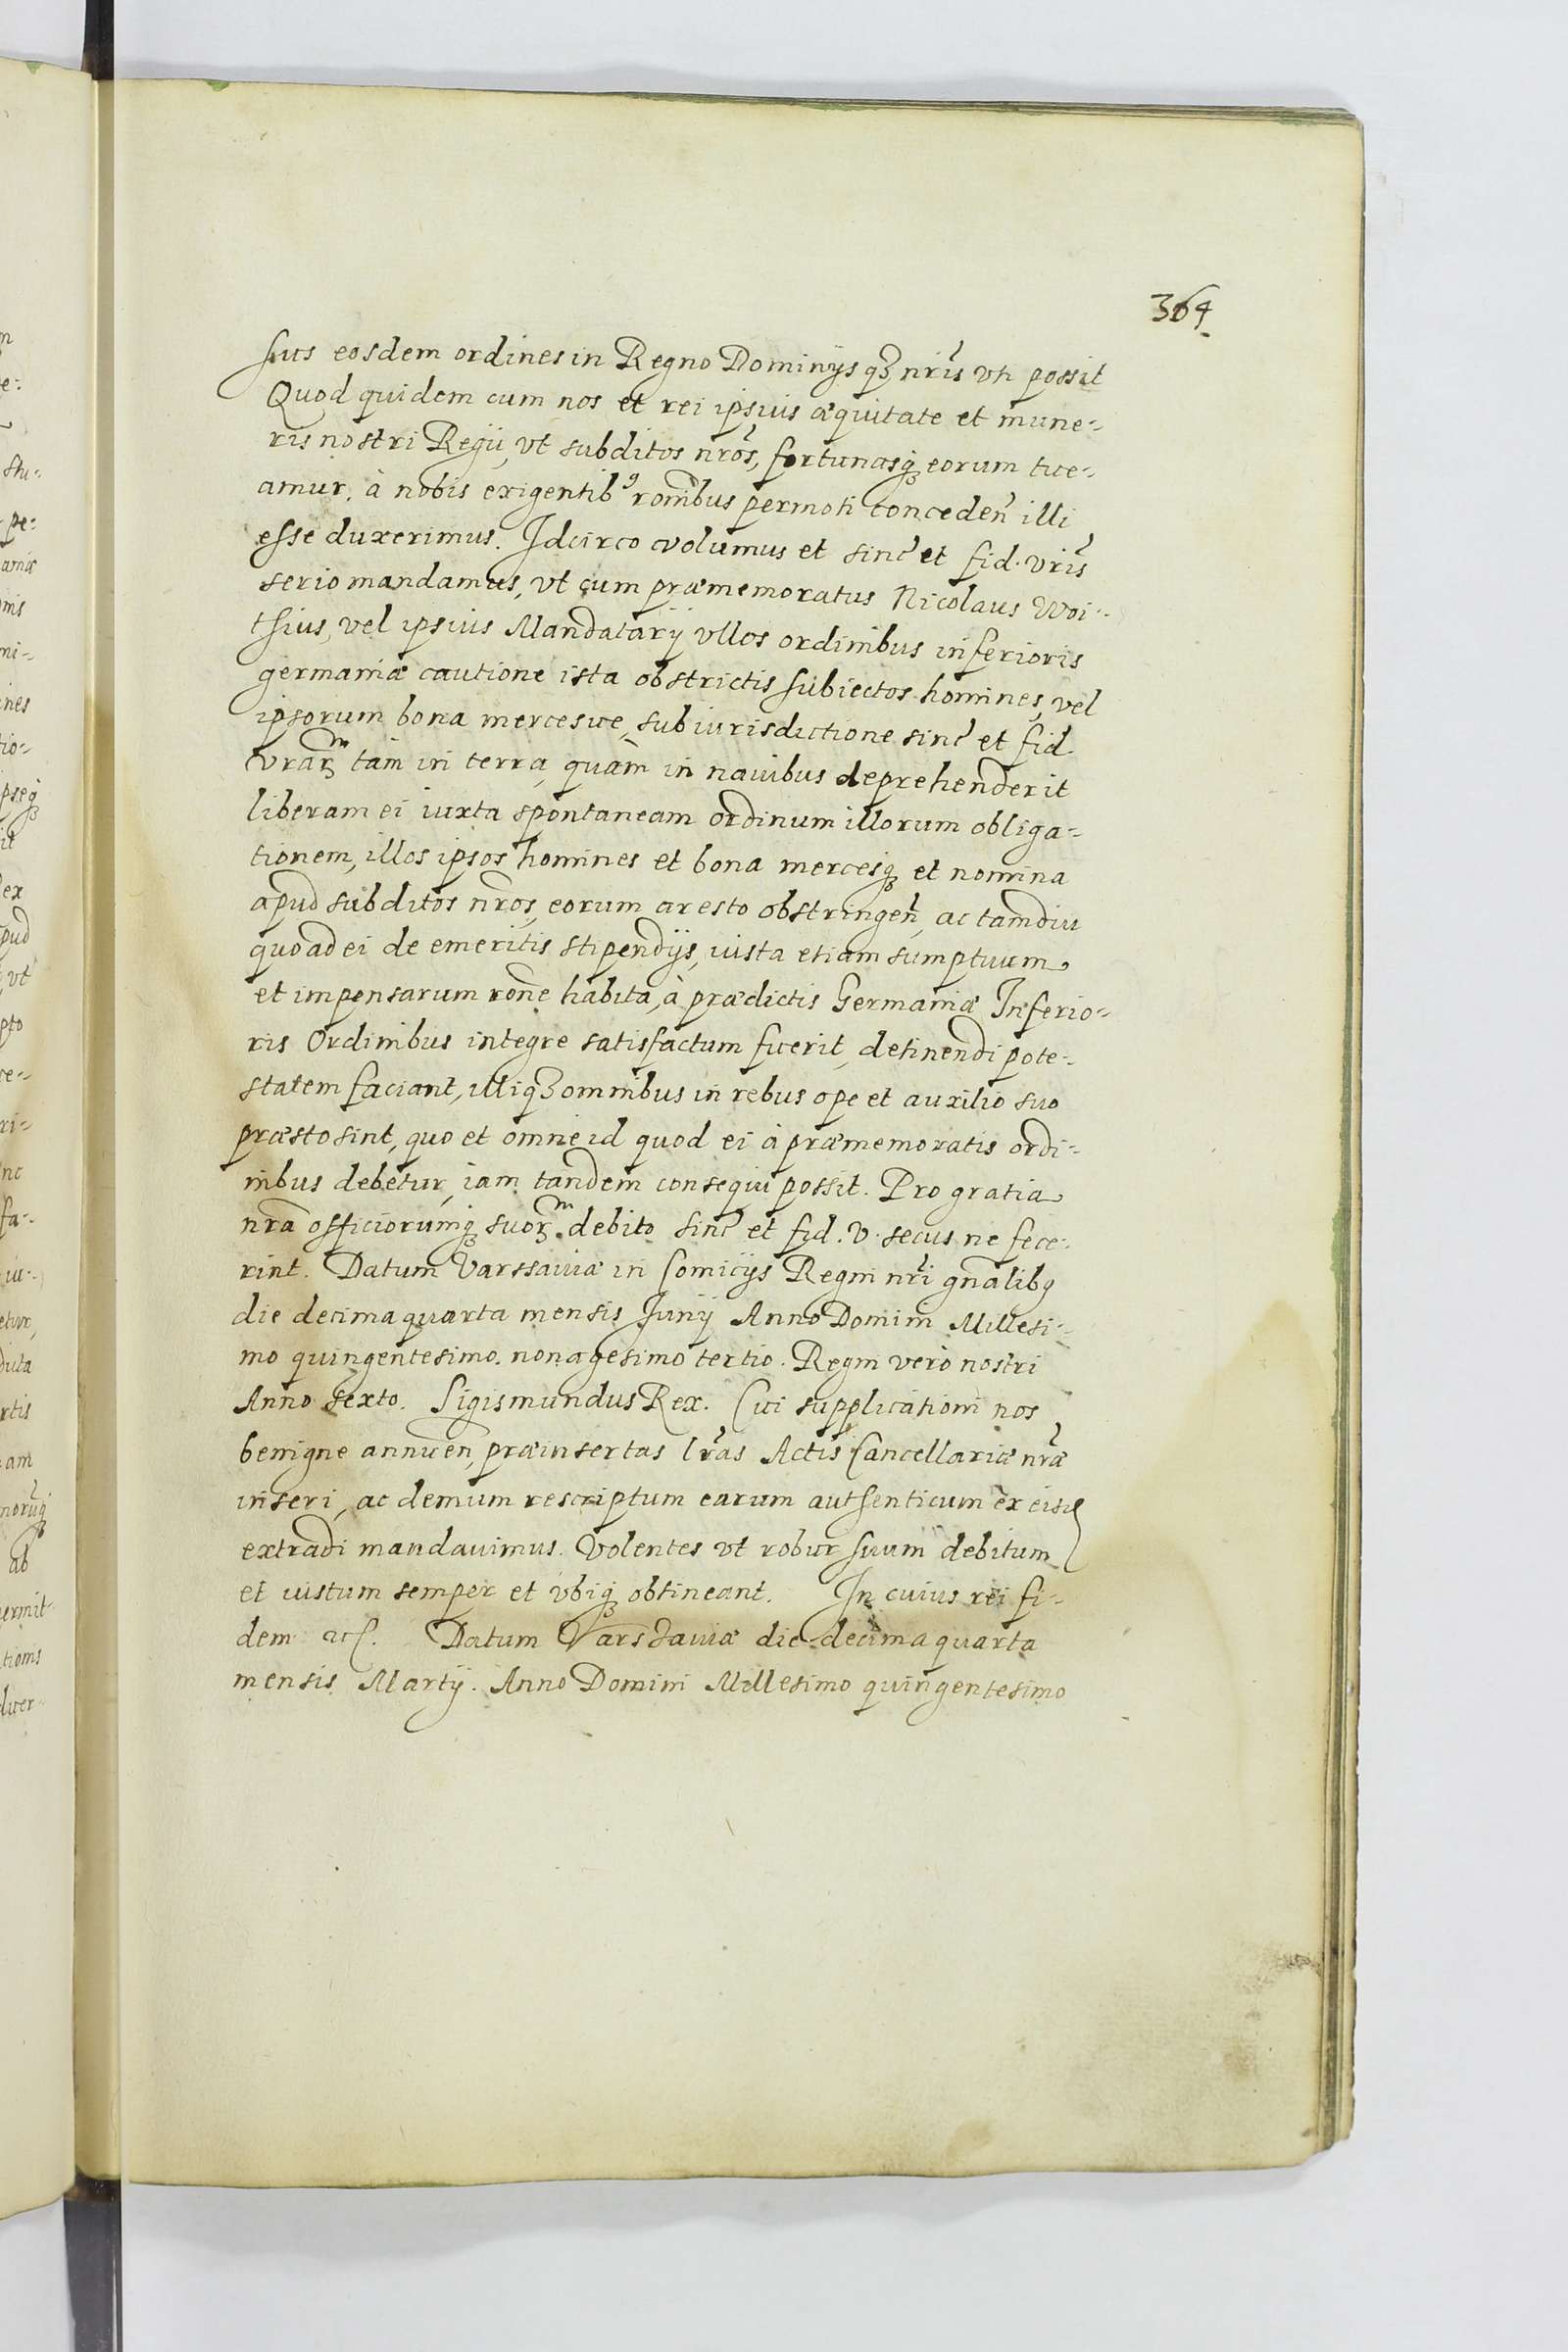 364
sus eosdem ordines in Regno Dominijsqȝ nris vti possit
Quod quidem cum nos et rei ipsius æquitate et mune-
ris nostri Regij, vt subditos nros, fortunasq eorum tue-
amur, à nobis exigentib9 ronibus permoti conceden illi
esse duxerimus. Idcirco volumus et sinc et fid. vris
serio mandamus, vt cum præmemoratus Nicolaus Woi-
tsius, vel ipsius Mandatarij vllos ordinibus inferioris
germaniæ cautione ista obstrictis subiectos homines, vel
ipsorum bona mercesue, sub iurisdictione sinc et fid.
vrarm tam in terra, quàm in nauibus deprehenderit
liberam ei iuxta spontaneam ordinum illorum obliga-
tionem, illos ipsos homines et bona mercesq et nomina
apud subditos nros, eorum aresto obstringen, ac tamdiu
quoad ei de emeritis stipendijs, iusta etiam sumptuum
et impensarum rone habita, à prædictis Germaniæ Inferio-
ris Ordinibus integre satisfactum fuerit, detinendi pote-
statem faciant, illiqȝ omnibus in rebus ope et auxilio suo
præsto sint, quo et omne id quod ei à præmemoratis ordi-
nibus debetur, iam tandem consequi possit. Pro gratia
nra officiorumq suorm debito sinc et fid. v. secus ne fece-
rint. Datum Varssauiæ in Comicijs Regni nri gnalibq
die decima quarta mensis Junij Anno Domini Millesi-
mo quingentesimo nonagesimo tertio. Regni verò nostri
Anno sexto. Sigismundus Rex. Cui supplicationi nos
benigne annuen, præinsertas lras Actis Cancellariæ nræ
inseri, ac demum rescriptum earum autsenticum ex eisd
extradi mandauimus. Volentes vt robur suum debitum
et iustum semper et vbiq obtineant. In cuius rei fi-
dem etc. Datum Varsauiæ die decima quarta
mensis Martij. Anno Domini Millesimo quingentesimo